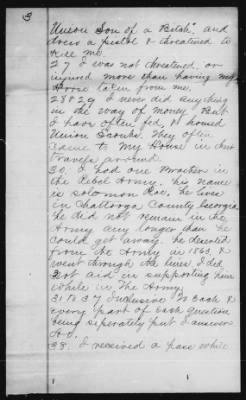 3
Union Son of a Bitch", and
drew a pistol & threatened to
kill me.
27 I was not threatened, or
injured more than having my
Horse taken from me.
28 & 29 I never did anything
in the way of money. But
I have often fed, & housed
Union Scouts. They often
came to my House in their
travels around.
30. I had one Brother in
the Rebel Army. his name
is Solomon he lives
in Chattooga County Georgia
he did not remain in the
Army any longer than he
could get away. he deserted
from the Army in 1863. &
went through the lines. I did
not aid in supporting him
while in the Army
31 to 37 Inclusive To each &
every part of each question
being seperately put I answer
No.
38. I received a pass while